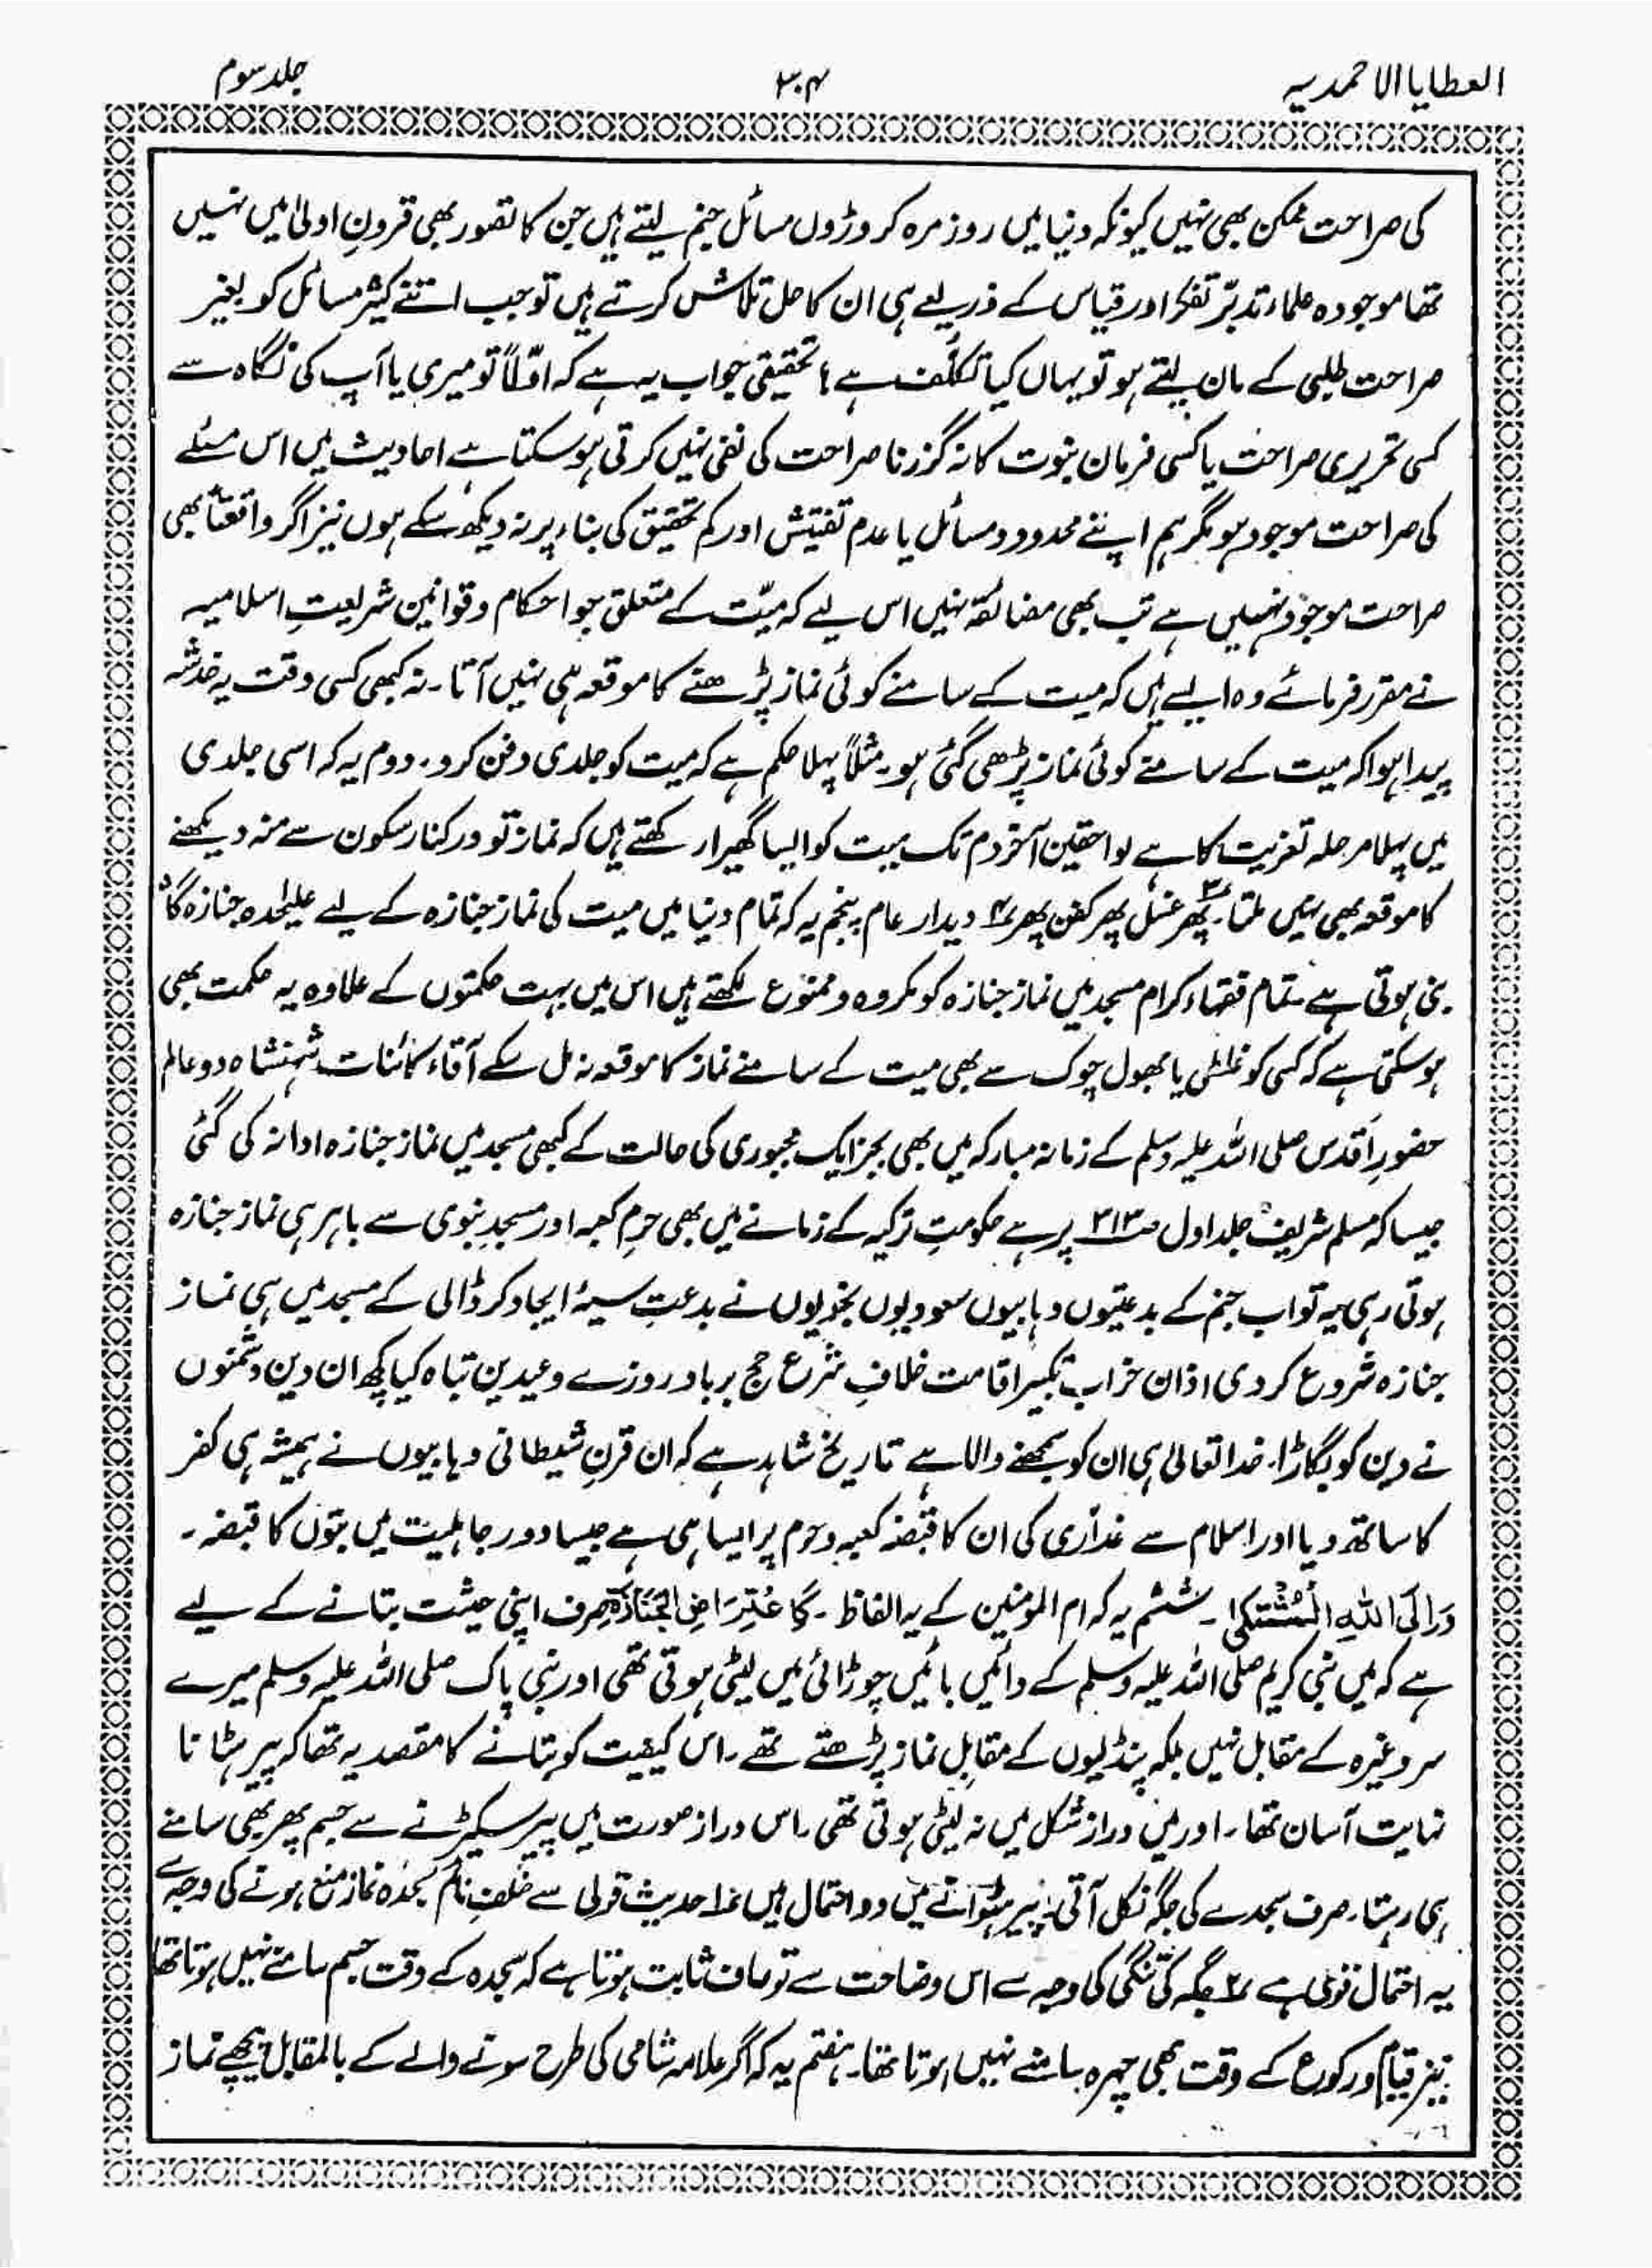 العطایا الاحمدیہ
۳۰۴
جلد سوم
کی صراحت ممکن بھی نہیں کیونکہ دنیا میں روز مرہ کروڑوں مسائل جنم لیتے ہیں جن کا تصور بھی قرونِ اولیٰ میں نہیں
تھا موجودہ علماء تدبّر تفکر اور قیاس کے ذریعے ہی ان کا حل تلاش کرتے ہیں تو جب اتنے کثیر مسائل کو بغیر
صراحت طلبی کے مان لیتے ہو تو یہاں کیا تکلّف ہے؟ تحقیقی جواب یہ ہے کہ اوّلاً تو میری یا آپ کی نگاہ سے
کسی تحریری صراحت یا کسی فرمان نبوت کا نہ گزرنا صراحت کی نفی نہیں کرتی ہو سکتا ہے احادیث میں اس مسئلے
کی صراحت موجود ہو مگر ہم اپنے محدود مسائل یا عدم تفتیش اور کم تحقیق کی بناء پر نہ دیکھ سکے ہوں نیز اگر واقعتاً بھی
صراحت موجود نہیں ہے تب بھی مضائقہ نہیں اس لیے کہ میّت کے متعلق جو احکام و قوانین شریعتِ اسلامیہ
نے مقرر فرمائے وہ ایسے ہیں کہ میت کے سامنے کوئی نماز پڑھنے کا موقعہ ہی نہیں آتا۔ نہ کبھی کسی وقت یہ خدشہ
پیدا ہوا کہ میت کے سامنے کوئی نماز پڑھی گئی ہو۔ مثلاً پہلا حکم ہے کہ میت کو جلدی دفن کردو۔ دوم یہ کہ اسی جلدی
میں پہلا مرحلہ تعزیت کا ہے لواحقین آخر دم تک میت کو ایسا گھیرا رکھتے ہیں کہ نماز تو درکنار سکون سے منہ دیکھنے
کا موقعہ بھی نہیں ملتا۔ ۳ پھر غسل پھر کفن پھر ۴ دیدار عام۔ پنجم یہ کہ تمام دنیا میں میت کی نماز جنازہ کے لیے علیٰحدہ جنازہ گاہ
بنی ہوتی ہے۔ تمام فقہاء کرام مسجد میں نماز جنازہ کو مکروہ و ممنوع لکھتے ہیں اس میں بہت حکمتوں کے علاوہ یہ حکمت بھی
ہو سکتی ہے کہ کسی کو غلطی یا بھول چوک سے بھی میت کے سامنے نماز کا موقعہ نہ مل سکے آقاء کائنات شہنشاہ دو عالم
حضورِ اقدس صلی اللہ علیہ وسلم کے زمانہ مبارکہ میں بھی بجز ایک مجبوری کی حالت کے کبھی مسجد میں نماز جنازہ ادا نہ کی گئی
جیسا کہ مسلم شریف جلد اول صـ ۳۱۳ پر ہے حکومتِ ترکیہ کے زمانے میں بھی حرمِ کعبہ اور مسجدِ نبوی سے باہر ہی نماز جنازہ
ہوتی رہی یہ تو اب جنم کے بدعتیوں وہابیوں سعودیوں نجدیوں نے بدعتِ سیئہ ایجاد کر ڈالی کے مسجد میں ہی نماز
جنازہ شروع کر دی اذان خراب تکبیر اقامت خلافِ شرع حج برباد روزے و عیدین تباہ کیا کچھ ان دین دشمنوں
نے دین کو بگاڑا۔ خدا تعالیٰ ہی ان کو سمجھنے والا ہے تاریخ شاہد ہے کہ ان قرنِ شیطانی وہابیوں نے ہمیشہ ہی کفر
کا ساتھ دیا اور اسلام سے غدّاری کی ان کا قبضہ کعبہ و حرم پر ایسا ہی ہے جیسا دور جاہلیت میں بتوں کا قبضہ۔
وَاِلَی اللہِ الْمُشْتَکٰی۔ ششم یہ کہ ام المومنین کے یہ الفاظ۔ کَاعْتِرَاضِ الْجَنَازَۃِ صرف اپنی حیثت بتانے کے لیے
ہے کہ میں نبی کریم صلی اللہ علیہ وسلم کے دائیں بائیں چوڑائی میں لیٹی ہوتی تھی اور نبی پاک صلی اللہ علیہ وسلم میرے
سر وغیرہ کے مقابل نہیں بلکہ پنڈلیوں کے مقابل نماز پڑھتے تھے۔ اس کیفیت کو بتانے کا مقصد یہ تھا کہ پیر ہٹانا
نہایت آسان تھا۔ اور میں دراز شکل میں نہ لیٹی ہوتی تھی۔ اس دراز صورت میں پیر سکیڑنے سے جسم پھر بھی سامنے
ہی رہتا۔ صرف سجدے کی جگہ نکل آتی۔ پیر ہٹوانے میں دو احتمال ہیں ۱ حدیث قولی سے خلفِ نائم سجدہ نماز منع ہونے کی وجہ سے
یہ احتمال قوی ہے ۲ جگہ کی تنگی کی وجہ سے اس وضاحت سے تو صاف ثابت ہوتا ہے کہ سجدہ کے وقت جسم سامنے نہیں ہوتا تھا
نیز قیام و رکوع کے وقت بھی چہرہ سامنے نہیں ہوتا تھا۔ ہفتم یہ کہ اگر علامہ شامی کی طرح سونے والے کے بالمقابل پیچھے نماز